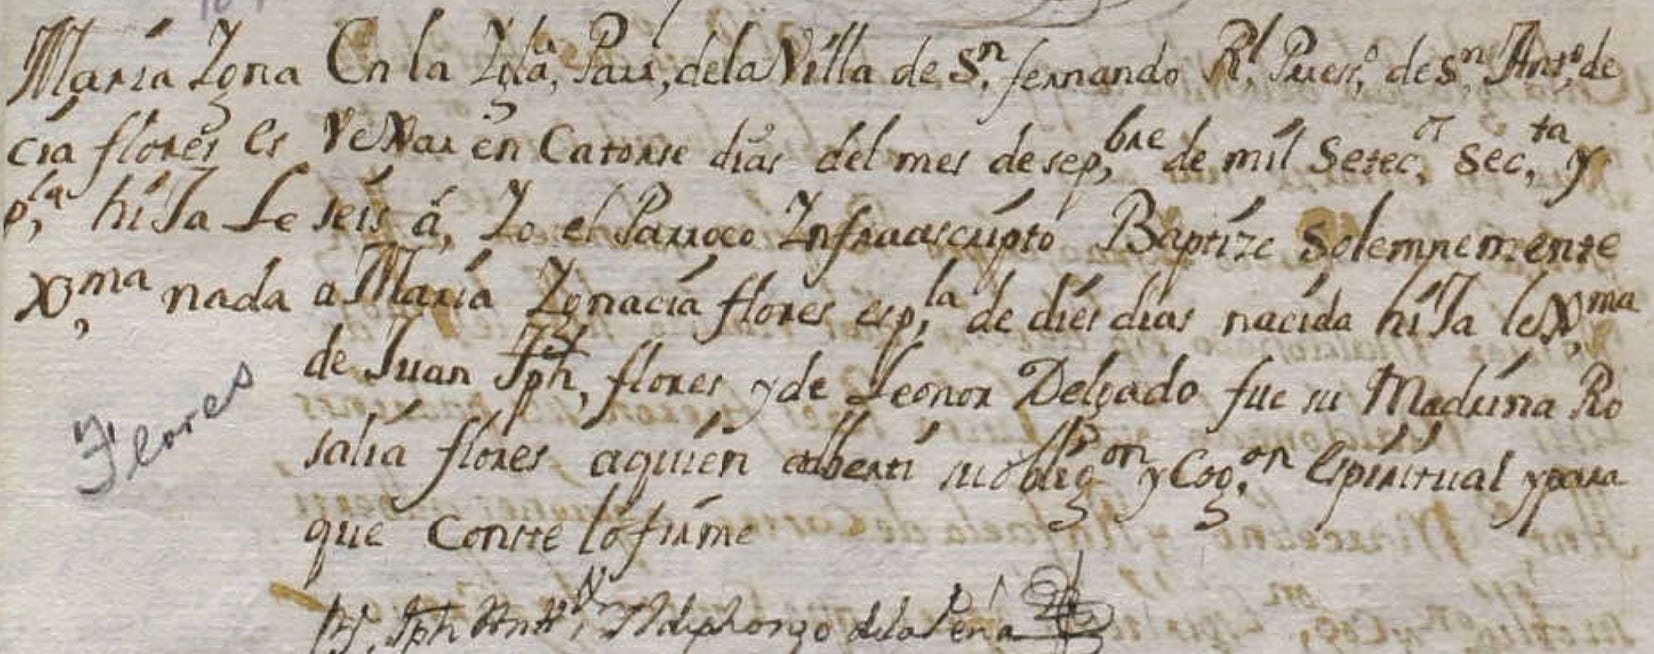 María Igna
cia flores es
p,la hiJa Le
X,ma nada
Flores
En la Igla, Parr, de la Villa de Sn. fernando Rl. Presi,o de Sn. Anto. de
VeXar en Catorse dias del mes de sep,bre de mil Setec,os Sec,ta y
seis á, Yo el Parroco Infraascripto Baptize Solempnemente
a María Ignacia flores esp,la de dies dias nacida hiJa leX,ma
de Juan Jph, flores y de Leonor Delgado fue su Madrina Ro
salia flores aquien adverti su oblig,on y Cog,on Espiritual y para
que Conste lo firme
Br, Jph Antto, Ildephonzo de la Peña